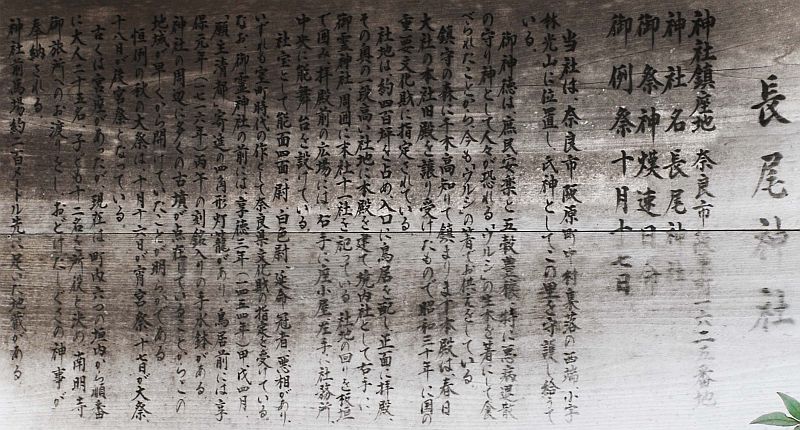 長尾神社
神社鎮座地 奈良市阪原町一六二五番地
神社名 長尾神社
御祭神 熯速日命
御例祭 十月十七日
当社は、奈良市阪原町中村集落の西端、小字
林光山に位置し、氏神としてこの里を守護し給うて
いる。
御神徳は庶民安楽と五穀豊穣、特に悪病退散
の守り神として人々が恐れる「ウルシ」の生木を箸にして食
べられたことから、今も「ウルシ」の箸でお供えをしている。
鎮守の森に千木高知りて鎮まります本殿は春日
大社の本社旧殿を譲り受けたもので、昭和三十年に国の
重要文化財に指定されている。
社地は約四百坪を占め入口に鳥居を配し正面に拝殿、
その奥の一段高い社地に本殿を建て、境内社として右手に
御霊神社、周囲に末社十二社を祀っている。社地の回りを板垣
で囲み拝殿前の広場には、右手に座小屋、左手に社務所、
中央に能舞台を設けている。
社宝として能面四面(尉、白色尉、延命冠者、悪相)があり、
いずれも室町時代の作として奈良県文化財の指定を受けている。
なお、御霊神社の前には「享徳三年(一四五四年)甲戌四月、
願主清都」寄進の四角形灯籠があり、鳥居前には「享
保元年(一七一六年)丙午の刻銘入りの手水鉢がある。
神社の周辺に多くの古墳が点在していることからこの
地域が早くから開けていたことが明らかである。
恒例の秋の大祭は、十月十六日が宵宮祭、十七日が大祭、
十八日が座宮祭となっている。
古くは宮座があったが、現在は町内六つの垣内から順番
に大人二十五石、子ども十二石を神役と決め、南明寺
御旅所へのお渡りをし、おどけたしぐさの神事が
奉納される。
神社前馬場約二百メートル先に、足いた地蔵がある。